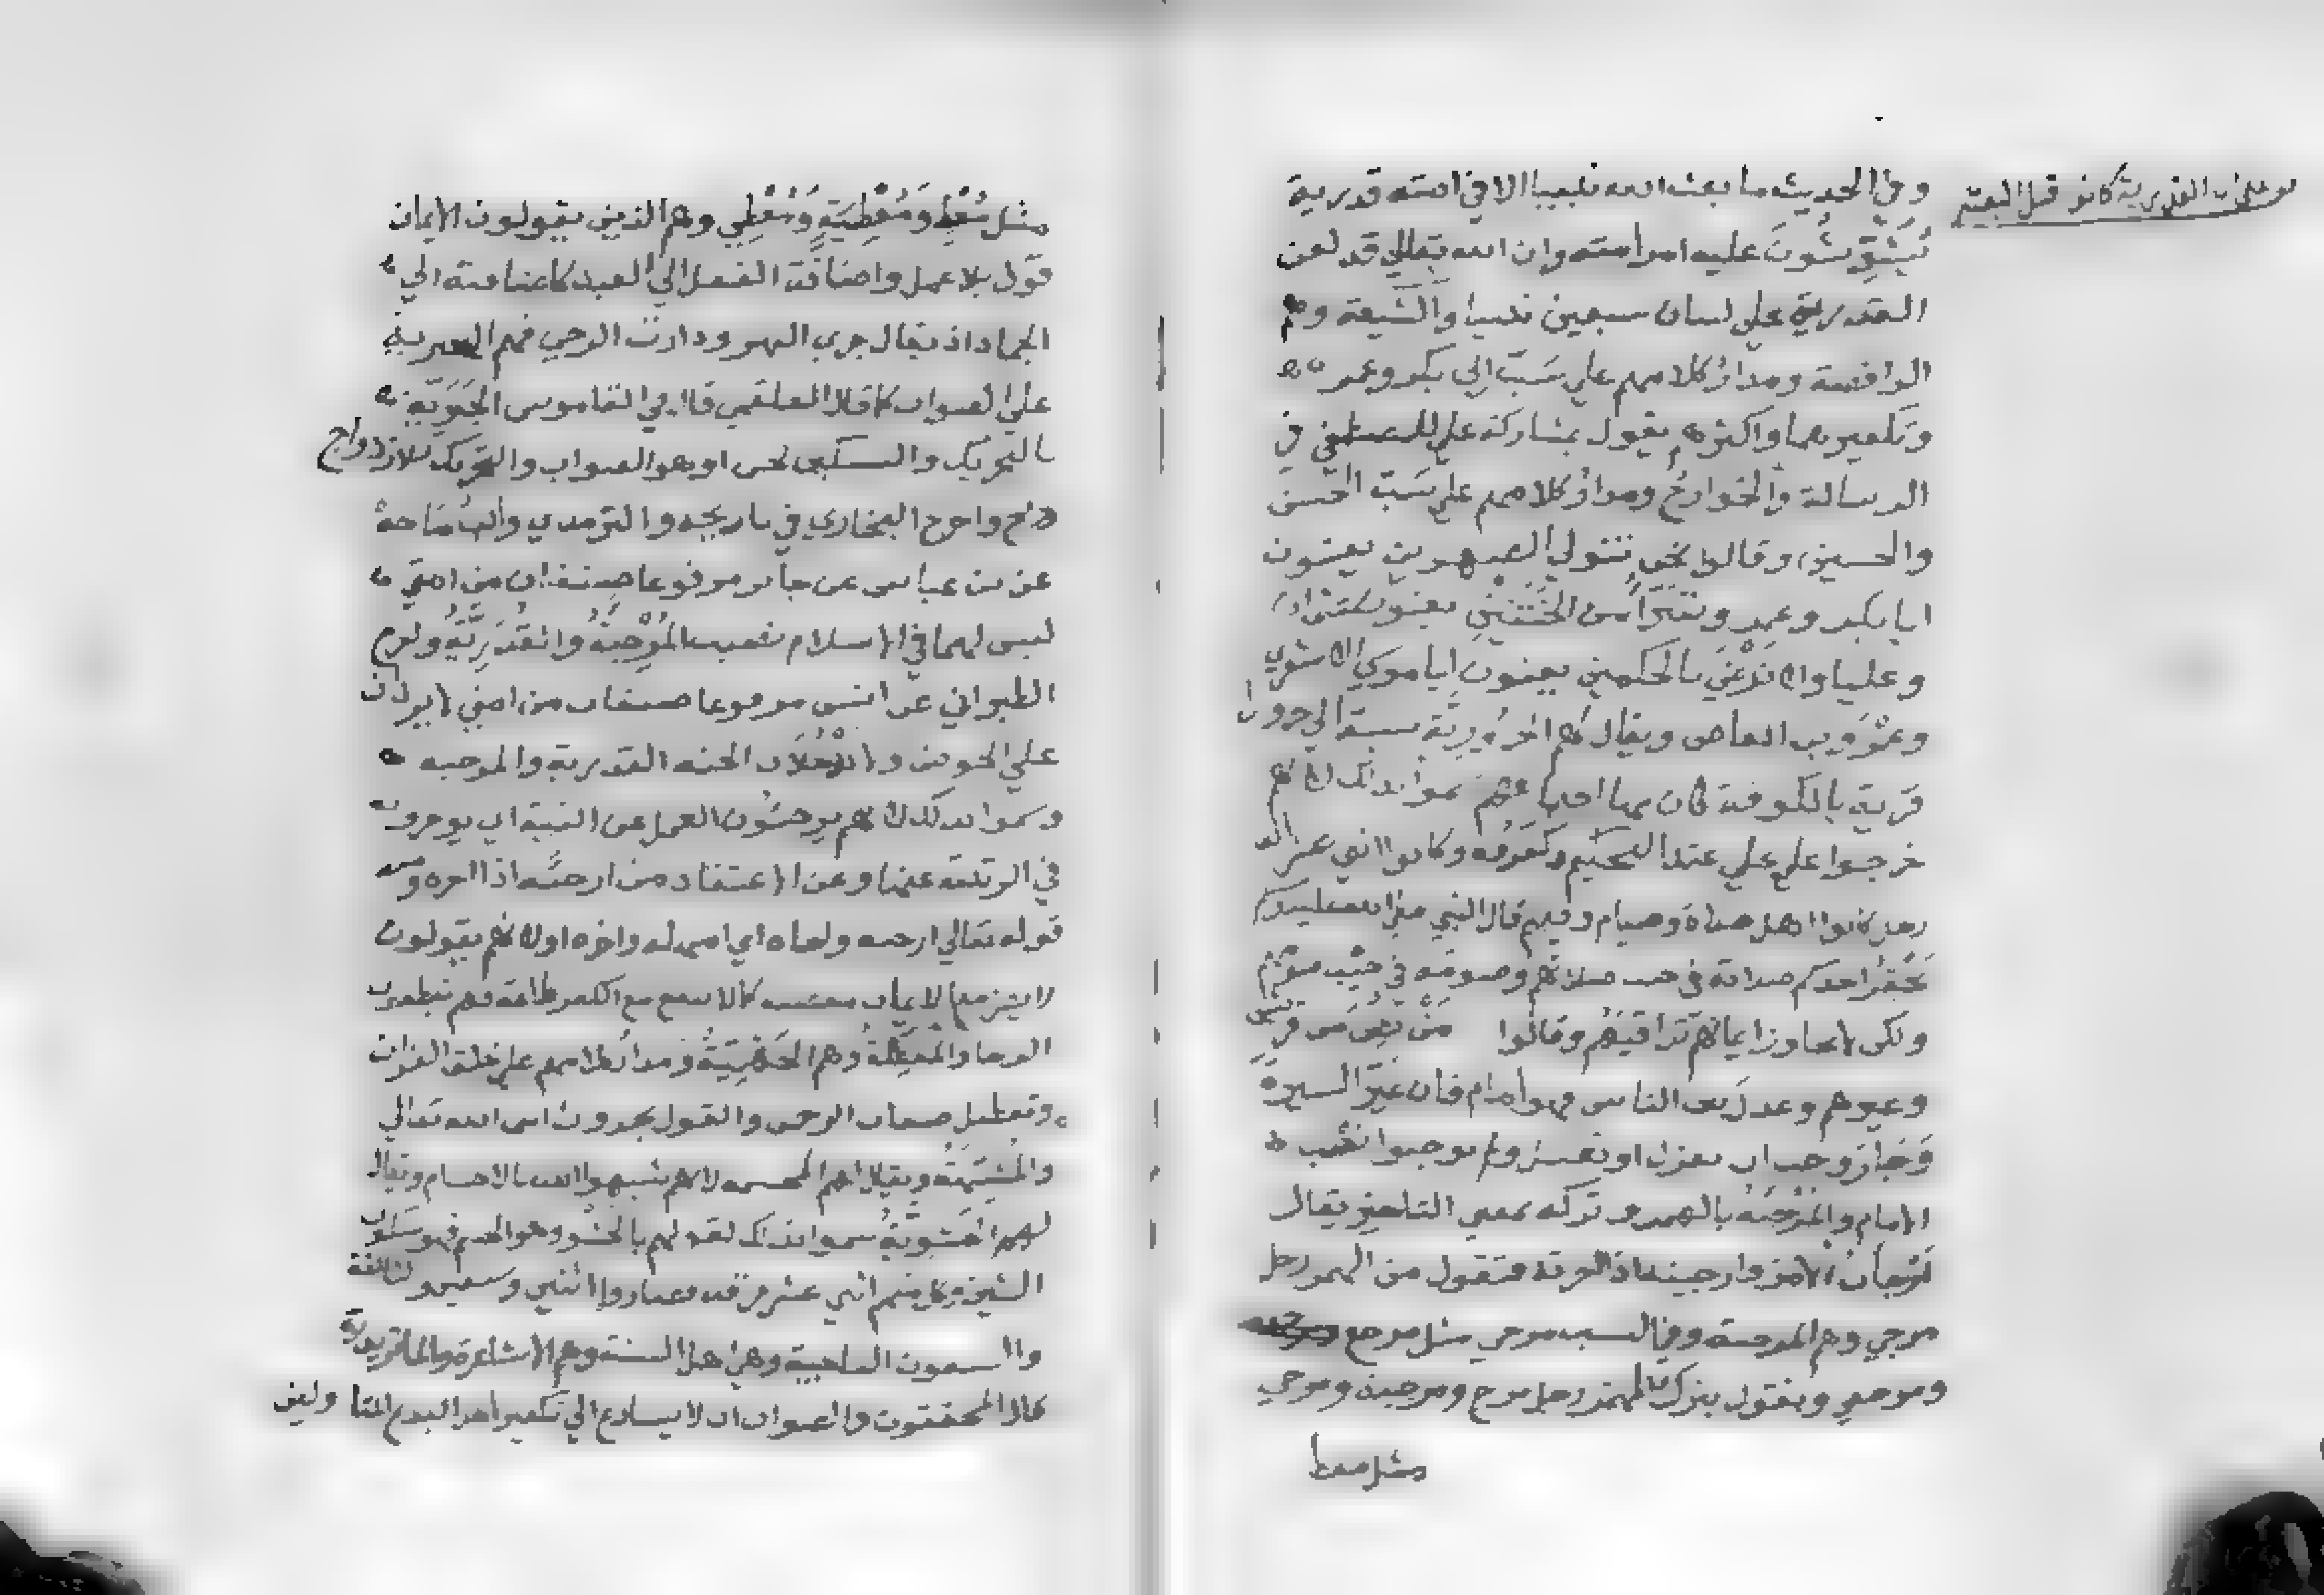 وفي الحديث ما بعث الله نبيا الا في امته قدرية
يُشَوِّشُونَ عليه امرامته وان الله تعالي قد لعن
القدرية علي لسان سبعين نبيا والشيعة وهم
الرافضة ومدارُ كلامهم علي سَبّ ابي بكر وعمر
وتكفيرهما واكثرهم يقول بمشاركة علي للمصطفي في
الرسالة والخوارجُ ومدارُ كلامهم علي سَبّ الحسن
والحسين وقالوا نحن نتولي الصهرين يعنون
ابا بكر وعمر ونتبرأ من الخَتَنَيْنِ يعنون عثمان
وعليا ولا نَرْضَي بالحكمين يعنون ابا موسي الاشعري
وعَمْرَو بن العاص ويقال لهم الحَرُورِيَّة نسبة الي حرورا
قرية بالكوفة كان بها اجتماعهم سموا بذلك لانهم
خرجوا علي علي عند التحكيم وكفروه وكانوا اثني عشر الف
رجل كانوا اهل صلاة وصيام وفيهم قال النبي صلي الله عليه وسلم
يَحْقِرُ احدكم صلاته في جنب صلاتهم وصومه في جَنْبِ صومهم
ولكن لا يجاوز ايمانهم تراقيهم وقالوا مَنْ نُصِبَ من قريش
وغيرهم وعدل بين الناس فهو امام فان غَيَّرَ السيرة
وَجَارَ وجب ان يعزل او يقتل ولم يوجبوا نصب
الامام والمُرْجِئَةُ بالهمز وتركه بمعني التاخير يقال
اَرْجَأْتُ الامر وارجيته اذا اخرته فتقول من الهمز رجل
مرجي وهم المرجئة وفي النسب مرجي مثل مرجع
ومرجعي وتقول بترك الهمز رجل مرج ومرجية ومرجي
مثل معط
بو علي ان القدرية كانو قبل البعثة
مثل مُعْطٍ ومُعْطِيَةٍ ومُعْطِي وهم الذين يقولون الايمان
قول بلا عمل واضافة الفعل الي العبد كاضافته الي
الجماد اذ يقال جري النهر ودارت الرحي فهم الجبرية
علي الصواب كما قال العلقمي قال في القاموس الجَبَرِيَّة
بالتحريك والتسكين لحن او هو الصواب والتحريك للازدواج
واخرج البخاري في تاريخه والترمذي وابن ماجة
عن بن عباس عن جابر مرفوعا صنفان من امتي
ليس لهما في الاسلام نصيب المُرْجِئَةُ والقَدَرِيَّةُ
الطبراني عن انس مرفوعا صنفان من امتي لا يردان
علي الحوض ولا يدخلان الجنه القدرية والمرجيه
وسموا بذلك لانهم يرجئون العمل عن النية اي يوخرون
في الرتبة عنها وعن الاعتقاد من ارجئه اذا اخره
قوله تعالي ارجه واخاه اي امهله واخره او لانهم يقولون
لا يضر مع الايمان معصيه كما لا ينفع مع الكفر طاعة فهم يعطون
الرجا والمعطلة وهم الجَهْمِيَّةُ ومدار كلامهم علي خلق القران
وتعطيل صفات الرحمن والقول بحدوث اسم الله تعالي
والمُشَبِّهَةُ ويقال لهم المجسمه لانهم شبهوا الله بالاجسام ويقال
لهم الحَشْوِيَّةُ سموا بذلك لقولهم بالحشو
الشيخ وكل منهم اثني عشر فرقه فصاروا اثنين وسبعين
والسبعون الناجية وهي اهل السنة وهم الاشاعرة والماتريدية
قال المحققون والصواب ان لا يسارع الي تكفير اهل البدع